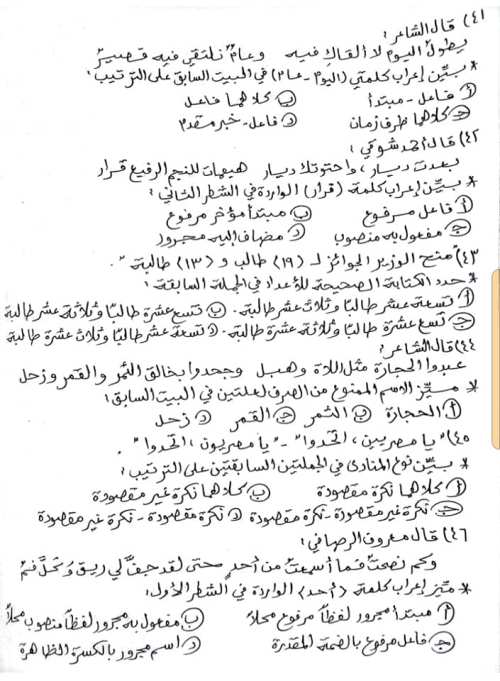 ٤١) قال الشاعر:
يطول اليوم لا ألقاك فيه وعام نلتقي فيه قصير
* بيّن إعراب كلمتي (اليوم - عام) في البيت السابق على الترتيب:
أ فاعل - مبتدأ ب كلاهما فاعل
ج كلاهما ظرف زمان د فاعل - خبر مقدم
٤٢) قال أحمد شوقي:
بعدت ديار، واحتوتك ديار هيهات للنجم الرفيع قرار
* بيّن إعراب كلمة (قرار) الواردة في الشطر الثاني:
أ فاعل مرفوع ب مبتدأ مؤخر مرفوع
ج مفعول به منصوب د مضاف إليه مجرور
٤٣) "منح الوزير الجوائز لـ (١٩) طالب و (١٣) طالبة".
* حدد الكتابة الصحيحة للأعداد في الجملة السابقة:
أ تسعة عشر طالبًا وثلاث عشر طالبة. ب تسع عشرة طالبًا وثلاثة عشر طالبة
ج تسع عشرة طالبًا وثلاثة عشرة طالبة. د تسعة عشر طالبًا وثلاث عشرة طالبة
٤٤) قال الشاعر:
عبدوا الحجارة مثل اللاة وهبل وجحدوا بخالق الثمر والقمر وزحل
* ميّز الاسم الممنوع من الصرف لعلتين في البيت السابق:
أ الحجارة ب الثمر ج القمر د زحل
٤٥) "يا مصريين، اتحدوا" - "يا مصريون، اتحدوا".
* بيّن نوع المنادى في الجملتين السابقتين على الترتيب:
أ كلاهما نكرة مقصودة ب كلاهما نكرة غير مقصودة
ج نكرة غير مقصودة - نكرة مقصودة د نكرة مقصودة - نكرة غير مقصودة
٤٦) قال معروف الرصافي:
وكم نصحت فما أسمعت من أحد حتى لقد جف لي ريق وكل فم
* ميّز إعراب كلمة (أحد) الواردة في الشطر الأول:
أ مبتدأ مجرور لفظًا مرفوع محلًا ب مفعول به مجرور لفظًا منصوب محلًا
ج فاعل مرفوع بالضمة المقدرة د اسم مجرور بالكسرة الظاهرة